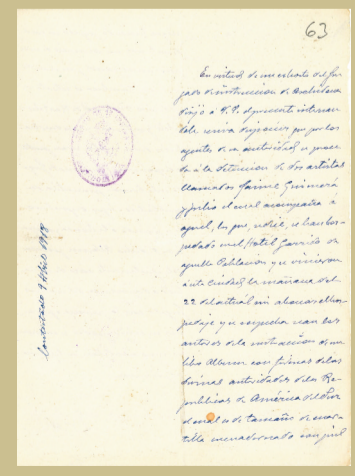 63
En virtud de un exhorto del Juz-
gado de instruccion de Archidona
dirijo á V. S. el presente interesan-
dole se sirva disponer que por los
agentes de su autoridad, se proce-
da á la detencion de dos artistas
llamados Jaime Guimerá
y Julio el cual acompaña á
aquel, los que, se dice, se han hos-
pedado en el Hotel Garrido de
aquella Poblacion y se vinieron
á esta Ciudad, la mañana del
22 del actual sin abonar el hos-
pedaje y se sospecha sean los
autores de la sustraccion de un
libro Album con firmas de las
diversas autoridades de las Re-
publicas de América del Sur
el cual es de tamaño de cuar-
tilla encuadernado con piel
Contestado 9 Abril 1918